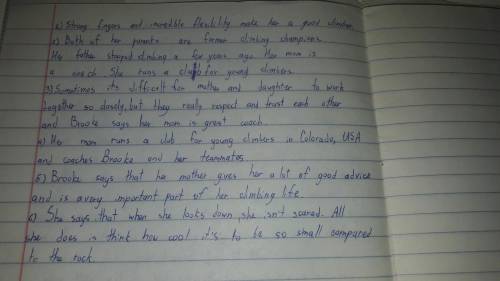 1) Strong fingers and incredible flexibility make her a good climber.
2) Both of her parents are former climbing champions.
Her father stopped climbing a few years ago. Her mom is
a coach. She runs a club for young climbers.
3) Sometimes its difficult for mother and daughter to work
together so closely, but they really respect and trust each other
and Brooke says her mom is great coach.
4) Her mom runs a club for young climbers in Colorado, USA
and coaches Brooke and her teammates.
5) Brooke says that her mother gives her a lot of good advice
and is a very important part of her climbing life.
6) She says that when she looks down, she isn't scared. All
she does is think how cool it's to be so small compared
to the rock.